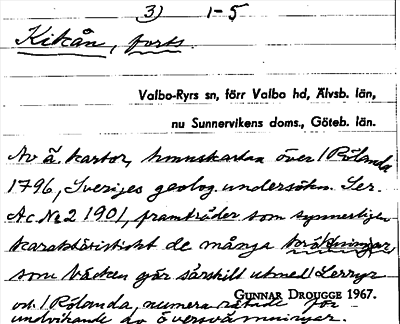 3) 1-5
Kikån, forts.
Valbo-Ryrs sn, förr Valbo hd, Älvsb. län,
nu Sunnervikens doms., Göteb. län.
Av ä. kartor, kartan över Rölanda
1796, Sveriges geolog. undersökn. Ser.
Ac No 2 1901, framträder som synnerligen
karaktäristiskt de många
som bäcken gör särskilt utmed Lerryr
och Rölanda, numera rätade för
GUNNAR DROUGGE 1967.
undvikande av översvämningar.